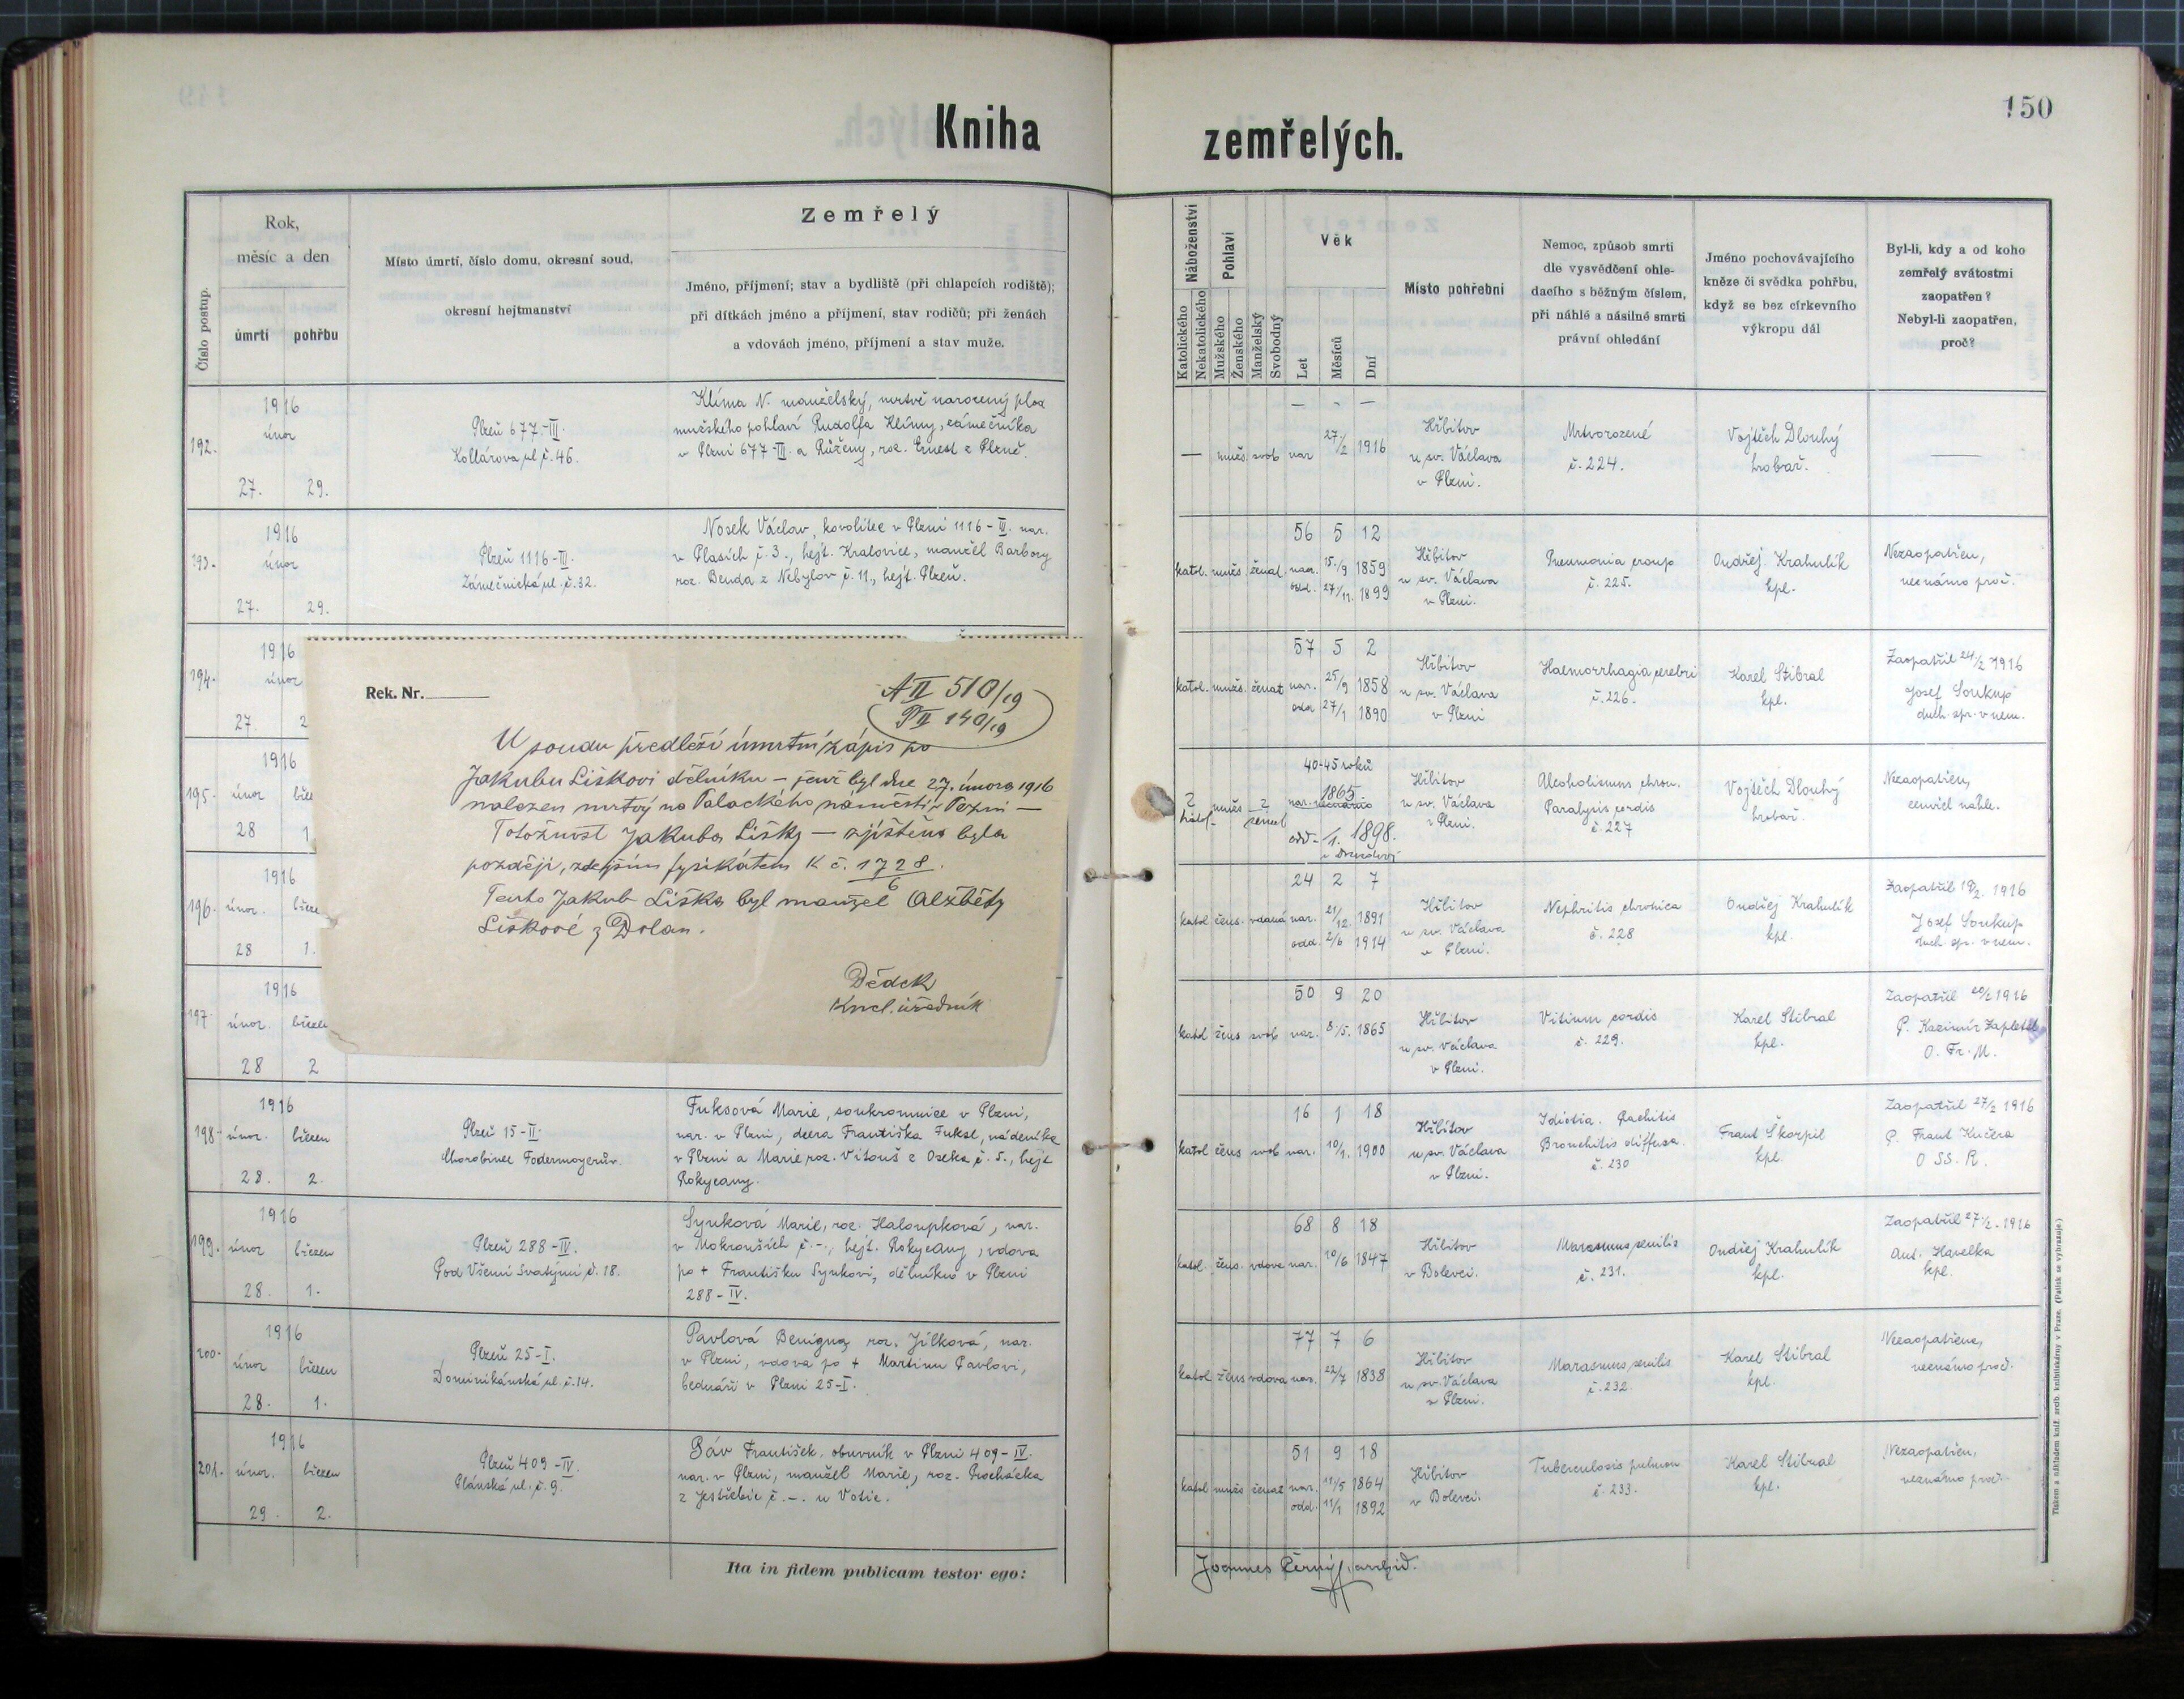 150
Kniha
zemřelých.
Číslo postup.
Rok,
měsíc a den
úmrtí
pohřbu
Místo úmrtí, číslo domu, okresní soud,
okresní hejtmanství
Zemřelý
Jméno, příjmení; stav a bydliště (při chlapcích rodiště);
při dítkách jméno a příjmení, stav rodičů; při ženách
a vdovách jméno, příjmení a stav muže.
192.
1916
únor
27.
29.
Plzeň 677-III.
Kollárova ul. č. 46.
Klíma N. manželský, mrtvě narozený plod
mužského pohlaví Rudolfa Klímy, zámečníka
v Plzni 677-III. a Růženy, roz. Ernest z Plzně.
193.
1916
únor
27.
29.
Plzeň 1116-III.
Zámečnická ul. č. 32.
Nosek Václav, kovolitec v Plzni 1116-III. nar.
v Plasích č. 3., hejt. Kralovice, manžel Barbory
roz. Benda z Nebylov č. 11., hejt. Plzeň.
194.
1916
únor
27.
2
195.
1916
únor
28
1.
196.
1916
únor.
28
1.
197.
1916
únor.
28
2
Rek. Nr.
A II 510/19
P II 140/19
U soudu předleží úmrtní zápis po
Jakubu Liškovi dělníku – jenž byl dne 27. února 1916
nalezen mrtvý na Palackého náměstí v Plzni –
Totožnost Jakuba Lišky – zjištěna byla
později, zdejším fysikátem K č. 1728/6.
Tento Jakub Liška byl manžel Alžběty
Liškové z Dolan.
Dědek
Kncl. úředník
198.
1916
únor.
březen
28.
2.
Plzeň 15-II.
Chorobinec Fodermayerův.
Fuksová Marie, soukromnice v Plzni,
nar. v Plzni, dcera Františka Fuksy, nádeníka
v Plzni a Marie roz. Vitouš z Oseka č. 5., hejt
Rokycany.
199.
1916
únor
březen
28.
1.
Plzeň 288-IV.
Pod Všemi Svatými č. 18.
Synková Marie, roz. Haloupková, nar.
v Mokrouších č. -., hejt. Rokycany, vdova
po + Františku Synkovi, dělníku v Plzni
288-IV.
200.
1916
únor
březen
28.
1.
Plzeň 25-I.
Dominikánská ul. č. 14.
Pavlová Benigna, roz. Jílková, nar.
v Plzni, vdova po + Martinu Pavlovi,
bednáři v Plzni 25-I.
201.
1916
únor.
březen
29.
2.
Plzeň 409-IV.
Plánská ul. č. 9.
Páv František, obuvník v Plzni 409-IV.
nar. v Plzni, manžel Marie, roz. Procházka
z Jestřebic č. -. u Votic.
Ita in fidem publicam testor ego:
Náboženství
Katolického
Nekatolického
Pohlaví
Mužského
Ženského
Manželský
Svobodný
Věk
Let
Měsíců
Dní
Místo pohřební
Nemoc, způsob smrti
dle vysvědčení ohle-
dacího s běžným číslem,
při náhlé a násilné smrti
právní ohledání
Jméno pochovávajícího
kněze či svědka pohřbu,
když se bez církevního
výkropu dál
Byl-li, kdy a od koho
zemřelý svátostmi
zaopatřen?
Nebyl-li zaopatřen,
proč?
— - —
— muž. svob nar 27/2 1916
Hřbitov
u sv. Václava
v Plzni.
Mrtvorozené
č. 224.
Vojtěch Dlouhý
hrobař.
—
56 5 12
katol. muž. ženat. nar. 15./9 1859
odd. 27/11. 1899
Hřbitov
u sv. Václava
v Plzni.
Pneumonia croup
č. 225.
Ondřej Krahulík
kpl.
Nezaopatřen,
neznámo proč.
57 5 2
katol. muž. ženat nar. 25/9 1858
odd 27/1 1890
Hřbitov
u sv. Václava
v Plzni
Haemorrhagia cerebri
č. 226.
Karel Stibral
kpl.
Zaopatřil 24/2 1916
Josef Soukup
duch. spr. v nem.
40-45 roků
nar. neznámo 1865.
odd - /1. 1898.
Hřbitov
u sv. Václava
v Plzni.
Alcoholismus chron.
Paralysis cordis
č. 227
Vojtěch Dlouhý
hrobař.
Nezaopatřen,
zemřel náhle.
24 2 7
katol žens. vdaná nar. 21/12. 1891
odd. 2/6 1914
Hřbitov
u sv. Václava
v Plzni.
Nephritis chronica
č. 228
Ondřej Krahulík
kpl.
Zaopatřil 19/2. 1916
Josef Soukup
duch. spr. v nem.
50 9 20
katol žens svob nar. 8/5. 1865
Hřbitov
u sv. Václava
v Plzni.
Vitium cordis
č. 229.
Karel Stibral
kpl.
Zaopatřil 20/2 1916
P. Kazimír Zapletal
O. Fr. M.
16 1 18
katol žens svob nar. 10/1. 1900
Hřbitov
u sv. Václava
v Plzni.
Idiotia. Rachitis
Bronchitis diffusa.
č. 230
Frant Škorpil
kpl.
Zaopatřil 27/2 1916
P. Frant Kučera
O SS. R.
68 8 18
katol. žens. vdova nar. 10/6 1847
Hřbitov
v Bolevci.
Marasmus senilis
č. 231.
Ondřej Krahulík
kpl.
Zaopatřil 27/2. 1916
Ant. Havelka
kpl.
77 7 6
katol žens vdova nar. 22/7 1838
Hřbitov
u sv. Václava
v Plzni.
Marasmus senilis
č. 232.
Karel Stibral
kpl.
Nezaopatřena,
neznámo proč.
51 9 18
katol muž ženat nar. 11/5 1864
odd. 11/1 1892
Hřbitov
v Bolevci.
Tuberculosis pulmon
č. 233.
Karel Stibral
kpl.
Nezaopatřen,
neznámo proč.
Joannes Černý, archid.
Tiskem a nákladem kníž. arcib. knihtiskárny v Praze. (Patisk se vyhrazuje.)